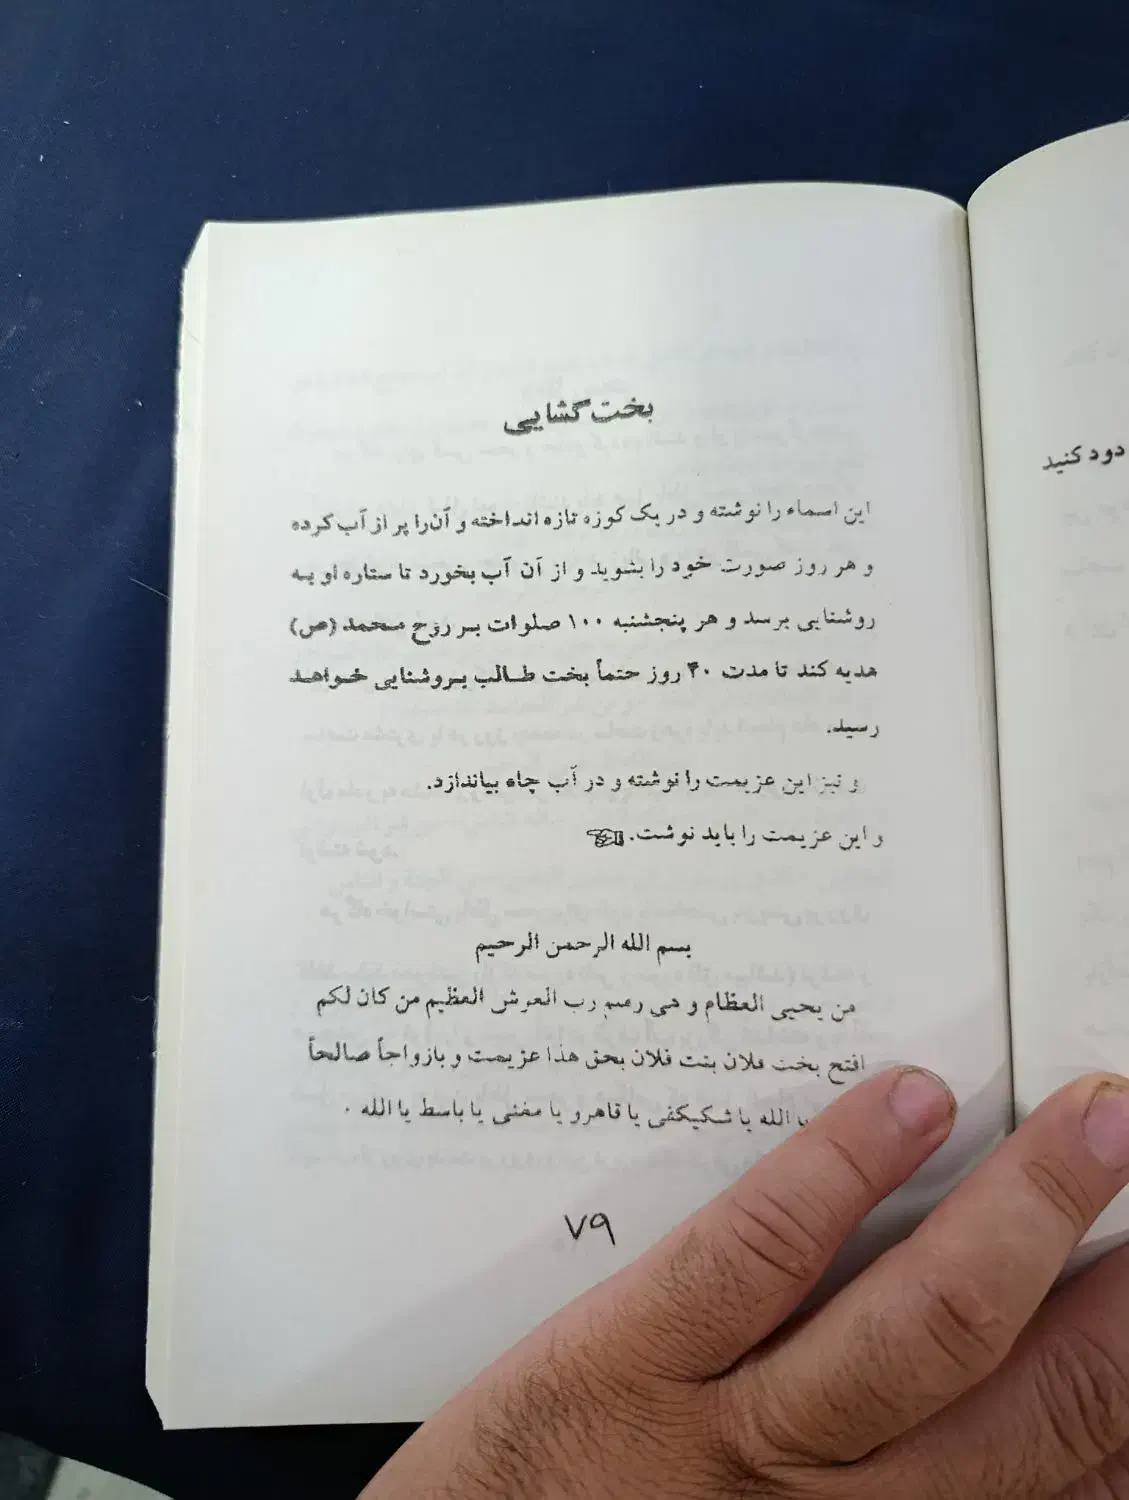 بخت گشایی
این اسماء را نوشته و در یک کوزه تازه انداخته و آن‌را پر از آب کرده
و هر روز صورت خود را بشوید و از آن آب بخورد تا ستاره او به
روشنایی برسد و هر پنجشنبه ۱۰۰ صلوات بر روح محمد (ص)
هدیه کند تا مدت ۴۰ روز حتماً بخت طالب بروشنایی خواهد
رسید.
و نیز این عزیمت را نوشته و در آب چاه بیاندازد.
و این عزیمت را باید نوشت.
بسم الله الرحمن الرحیم
من یحیی العظام و هی رمیم رب العرش العظیم من کان لکم
افتح بخت فلان بنت فلان بحق هذا عزیمت و بازواجاً صالحاً
یا الله یا شکیکفی یا قاهرو یا مغنی یا باسط یا الله .
۷۹
دود کنید